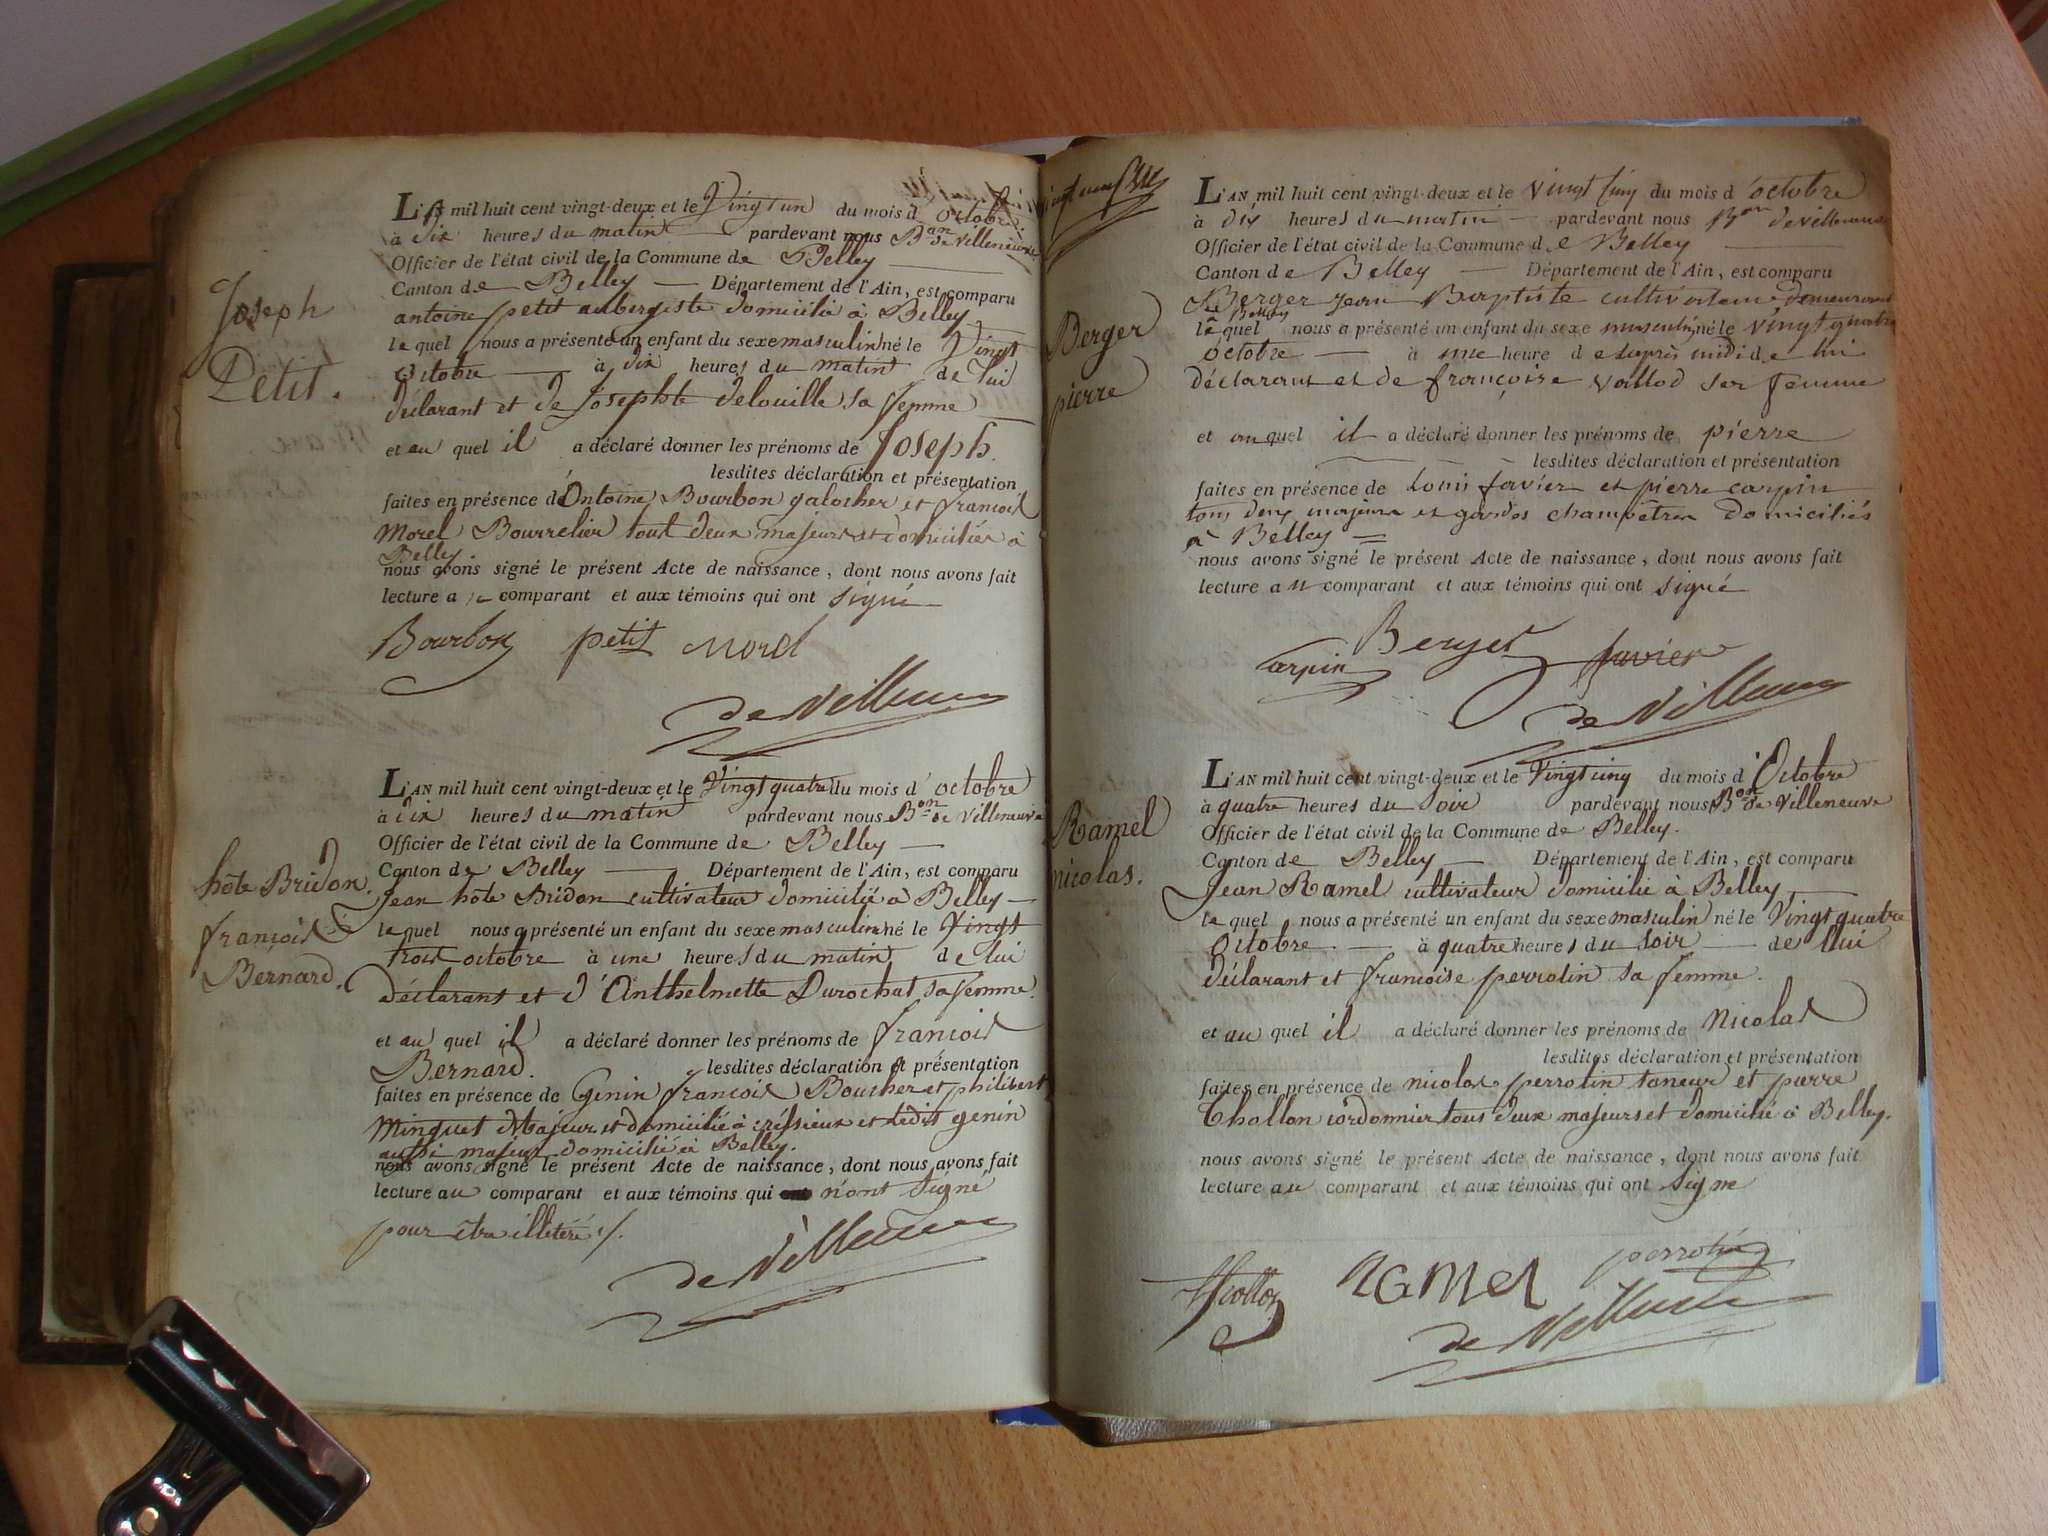 Joseph
Petit.
L'an mil huit cent vingt-deux et le Vingt un du mois d'octobre
à dix heures du matin pardevant nous Bon de Villeneuve
Officier de l'état civil de la Commune de Belley
Canton de Belley Département de l'Ain, est comparu
antoine petit aubergiste domicilié à Belley
le quel nous a présenté un enfant du sexe masculin né le Vingt
octobre à dix heures du matin de lui
déclarant et de Josephte delouille sa femme
et au quel il a déclaré donner les prénoms de Joseph.
lesdites déclaration et présentation
faites en présence d'Antoine Bourbon galocher et francois
Morel Bourrelier tout deux majeurs et domiciliés à
Belley.
nous avons signé le présent Acte de naissance, dont nous avons fait
lecture a comparant et aux témoins qui ont signé
Bourbon petit Morel
de Villeneuve
hôte Bridon.
françois
Bernard.
L'an mil huit cent vingt-deux et le Vingt quatre du mois d'octobre
à dix heures du matin pardevant nous Bon de Villeneuve
Officier de l'état civil de la Commune de Belley
Canton de Belley Département de l'Ain, est comparu
Jean hôte Bridon cultivateur domicilié à Belley
le quel nous a présenté un enfant du sexe masculin né le Vingt
trois octobre à une heures du matin de lui
déclarant et d'Anthelmette Durochat sa femme.
et au quel il a déclaré donner les prénoms de francois
Bernard. lesdites déclaration et présentation
faites en présence de Genin francois Boucher et philibert
Minguet Majeur et domicilié à créssieux et ledit genin
aussi majeur domicilié à Belley.
nous avons signé le présent Acte de naissance, dont nous avons fait
lecture au comparant et aux témoins qui n'ont signé
pour être illetéré ./.
de Villeneuve
vingt neuf
Berger
pierre
L'an mil huit cent vingt-deux et le vingt cinq du mois d'octobre
à dix heures du matin pardevant nous Bon de Villeneuve
Officier de l'état civil de la Commune de Belley
Canton de Belley Département de l'Ain, est comparu
Berger jean Baptiste cultivateur demeurant
à Belley
le quel nous a présenté un enfant du sexe masculin né le vingt quatre
octobre à une heure de laprès midi de lui
déclarant et de françoise vallod sa femme
et au quel il a déclaré donner les prénoms de pierre
lesdites déclaration et présentation
faites en présence de Louis favier et pierre carpin
tous deux majeurs et gardes champêtres domiciliés
à Belley
nous avons signé le présent Acte de naissance, dont nous avons fait
lecture au comparant et aux témoins qui ont signé
Carpin Berger favier
de Villeneuve
Ramel
nicolas.
L'an mil huit cent vingt-deux et le Vingt cinq du mois d'Octobre
à quatre heures du soir pardevant nous Bon de Villeneuve
Officier de l'état civil de la Commune de Belley.
Canton de Belley Département de l'Ain, est comparu
Jean Ramel cultivateur domicilié à Belley
le quel nous a présenté un enfant du sexe masculin né le Vingt quatre
octobre à quatre heures du soir de lui
déclarant et francoise perrotin sa femme.
et au quel il a déclaré donner les prénoms de Nicolas
lesdites déclaration et présentation
faites en présence de nicolas perrotin taneur et pierre
Thollon cordonnier tous deux majeurs et domicilié à Belley.
nous avons signé le présent Acte de naissance, dont nous avons fait
lecture au comparant et aux témoins qui ont signé
Thollon Ramel perrotin
de Villeneuve